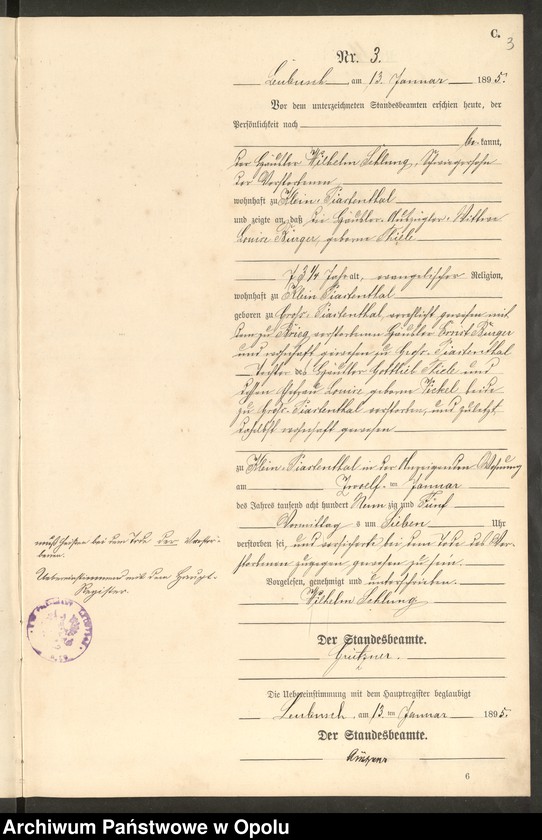 C.
3
Nr. 3.
Leubusch, am 13. Januar 1895.
Vor dem unterzeichneten Standesbeamten erschien heute, der
Persönlichkeit nach
be kannt,
der Häusler Wilhelm Schlung, Schwiegersohn
der Verstorbenen
wohnhaft zu Klein-Piastenthal
und zeigte an, daß die Häusler-Auszügler-Wittwe
Louise Bürger, geborne Thiele
73 1/4 Jahr alt, evangelischer Religion,
wohnhaft zu Klein Piastenthal
geboren zu Groß-Piastenthal, verehlicht gewesen mit
dem zu Brieg verstorbenen Häusler Ernst Bürger
und wohnhaft gewesen zu Groß-Piastenthal
Tochter des Häusler Gottlieb Thiele und
dessen Ehefrau Louise geborne beide
zu Groß-Piastenthal verstorben, und zuletzt
daselbst wohnhaft gewesen
zu Klein-Piastenthal in der Anzeigenden Wohnung
am Zwoelften Januar
des Jahres tausend acht hundert Neun zig und Fünf
Vormittag s um Sieben Uhr
verstorben sei, und versicherte bei dem Tode des Ver-
storbenen zugegen gewesen zu sein.
Vorgelesen, genehmigt und unterschrieben.
Wilhelm Schlung
Der Standesbeamte.
Grützner.
muß heißen bei dem Tode der Verstor-
benen.
Uebereinstimmend mit dem Haupt-
Register.
Die Uebereinstimmung mit dem Hauptregister beglaubigt
Leubusch, am 13. ten Januar 1895.
Der Standesbeamte.
Grützner
6
Archiwum Państwowe w Opolu